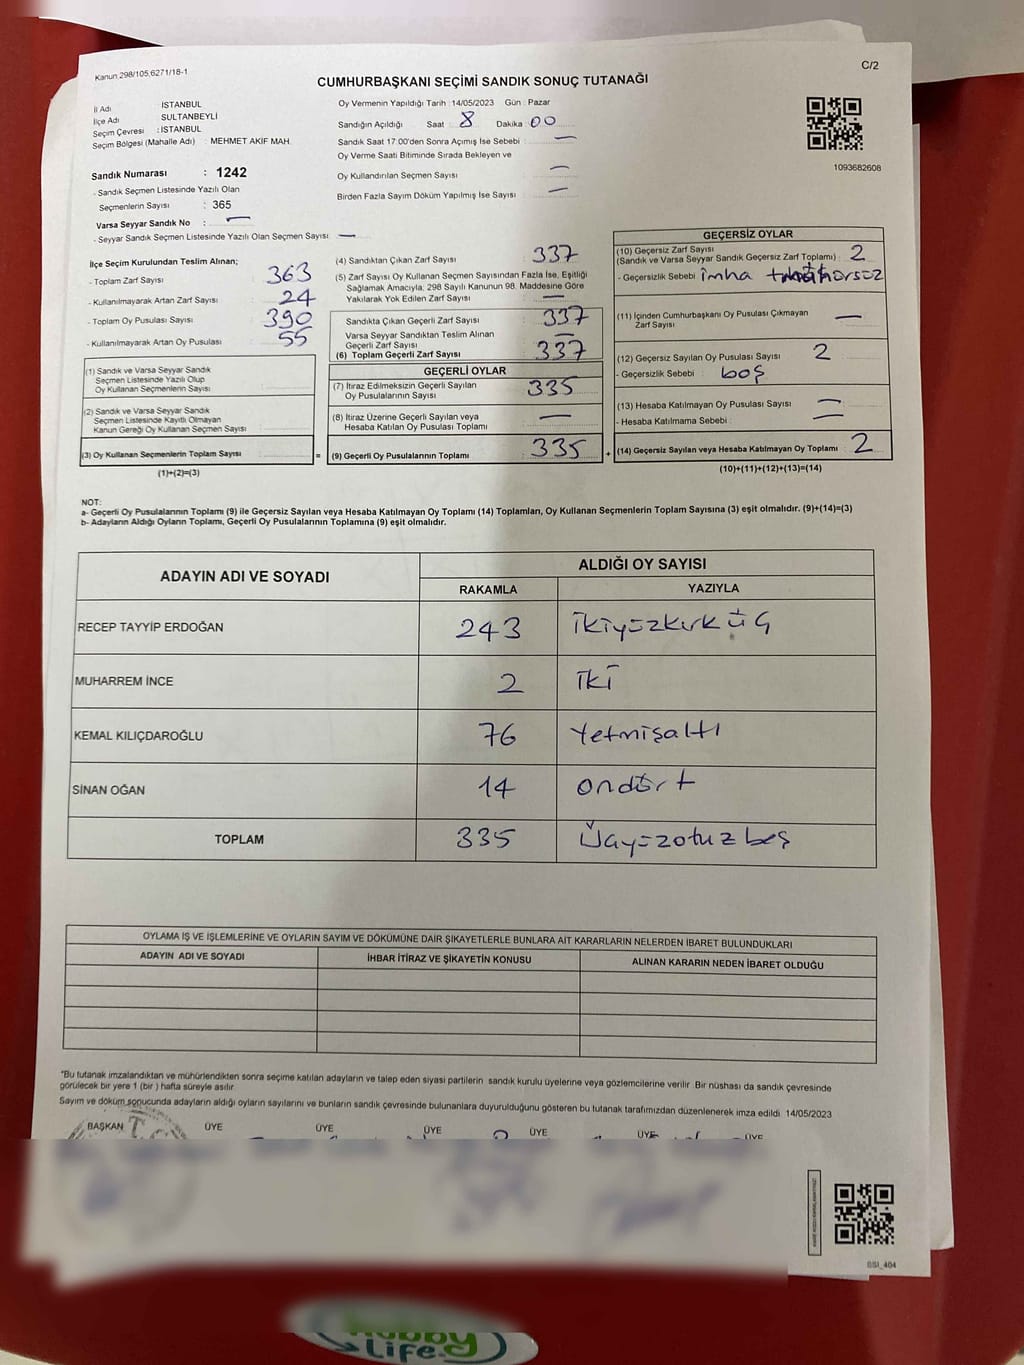 Kanun 298/105,6271/18-1
C/2
CUMHURBAŞKANI SEÇİMİ SANDIK SONUÇ TUTANAĞI
İl Adı : İSTANBUL
İlçe Adı : SULTANBEYLİ
Seçim Çevresi : İSTANBUL
Seçim Bölgesi (Mahalle Adı) : MEHMET AKİF MAH.
Oy Vermenin Yapıldığı Tarih : 14/05/2023 Gün : Pazar
Sandığın Açıldığı Saat 8 Dakika 00
Sandık Saat 17:00'den Sonra Açılmış İse Sebebi : —
Oy Verme Saati Bitiminde Sırada Bekleyen ve
Oy Kullandırılan Seçmen Sayısı : —
Birden Fazla Sayım Döküm Yapılmış İse Sayısı : —
1093682608
Sandık Numarası : 1242
- Sandık Seçmen Listesinde Yazılı Olan
Seçmenlerin Sayısı : 365
Varsa Seyyar Sandık No : —
- Seyyar Sandık Seçmen Listesinde Yazılı Olan Seçmen Sayısı: —
İlçe Seçim Kurulundan Teslim Alınan;
- Toplam Zarf Sayısı : 363
- Kullanılmayarak Artan Zarf Sayısı : 24
- Toplam Oy Pusulası Sayısı : 390
- Kullanılmayarak Artan Oy Pusulası : 55
(1) Sandık ve Varsa Seyyar Sandık
Seçmen Listesinde Yazılı Olup
Oy Kullanan Seçmenlerin Sayısı :
(2) Sandık ve Varsa Seyyar Sandık
Seçmen Listesinde Kayıtlı Olmayan
Kanun Gereği Oy Kullanan Seçmen Sayısı :
(3) Oy Kullanan Seçmenlerin Toplam Sayısı : =
(1)+(2)=(3)
(4) Sandıktan Çıkan Zarf Sayısı : 337
(5) Zarf Sayısı Oy Kullanan Seçmen Sayısından Fazla İse, Eşitliği
Sağlamak Amacıyla; 298 Sayılı Kanunun 98. Maddesine Göre
Yakılarak Yok Edilen Zarf Sayısı : —
Sandıkta Çıkan Geçerli Zarf Sayısı : 337
Varsa Seyyar Sandıktan Teslim Alınan
Geçerli Zarf Sayısı : —
(6) Toplam Geçerli Zarf Sayısı : 337
GEÇERLİ OYLAR
(7) İtiraz Edilmeksizin Geçerli Sayılan
Oy Pusulalarının Sayısı : 335
(8) İtiraz Üzerine Geçerli Sayılan veya
Hesaba Katılan Oy Pusulası Toplamı : —
(9) Geçerli Oy Pusulalarının Toplamı : 335 +
GEÇERSİZ OYLAR
(10) Geçersiz Zarf Sayısı
(Sandık ve Varsa Seyyar Sandık Geçersiz Zarf Toplamı) : 2
- Geçersizlik Sebebi : imha
(11) İçinden Cumhurbaşkanı Oy Pusulası Çıkmayan
Zarf Sayısı : —
(12) Geçersiz Sayılan Oy Pusulası Sayısı : 2
- Geçersizlik Sebebi : boş
(13) Hesaba Katılmayan Oy Pusulası Sayısı : —
- Hesaba Katılmama Sebebi : —
(14) Geçersiz Sayılan veya Hesaba Katılmayan Oy Toplamı : 2
(10)+(11)+(12)+(13)=(14)
NOT:
a- Geçerli Oy Pusulalarının Toplamı (9) ile Geçersiz Sayılan veya Hesaba Katılmayan Oy Toplamı (14) Toplamları, Oy Kullanan Seçmenlerin Toplam Sayısına (3) eşit olmalıdır. (9)+(14)=(3)
b- Adayların Aldığı Oyların Toplamı, Geçerli Oy Pusulalarının Toplamına (9) eşit olmalıdır.
ADAYIN ADI VE SOYADI
ALDIĞI OY SAYISI
RAKAMLA YAZIYLA
RECEP TAYYİP ERDOĞAN 243 ikiyüzkırküç
MUHARREM İNCE 2 iki
KEMAL KILIÇDAROĞLU 76 Yetmişaltı
SİNAN OĞAN 14 ondört
TOPLAM 335 Üçyüzotuzbeş
OYLAMA İŞ VE İŞLEMLERİNE VE OYLARIN SAYIM VE DÖKÜMÜNE DAİR ŞİKAYETLERLE BUNLARA AİT KARARLARIN NELERDEN İBARET BULUNDUKLARI
ADAYIN ADI VE SOYADI İHBAR İTİRAZ VE ŞİKAYETİN KONUSU ALINAN KARARIN NEDEN İBARET OLDUĞU
"Bu tutanak imzalandıktan ve mühürlendikten sonra seçime katılan adayların ve talep eden siyasi partilerin sandık kurulu üyelerine veya gözlemcilerine verilir. Bir nüshası da sandık çevresinde
görülecek bir yere 1 (bir ) hafta süreyle asılır.
Sayım ve döküm sonucunda adayların aldığı oyların sayılarını ve bunların sandık çevresinde bulunanlara duyurulduğunu gösteren bu tutanak tarafımızdan düzenlenerek imza edildi. 14/05/2023
BAŞKAN ÜYE ÜYE ÜYE ÜYE ÜYE ÜYE
T.C.
BSI_404
Hobby
Life